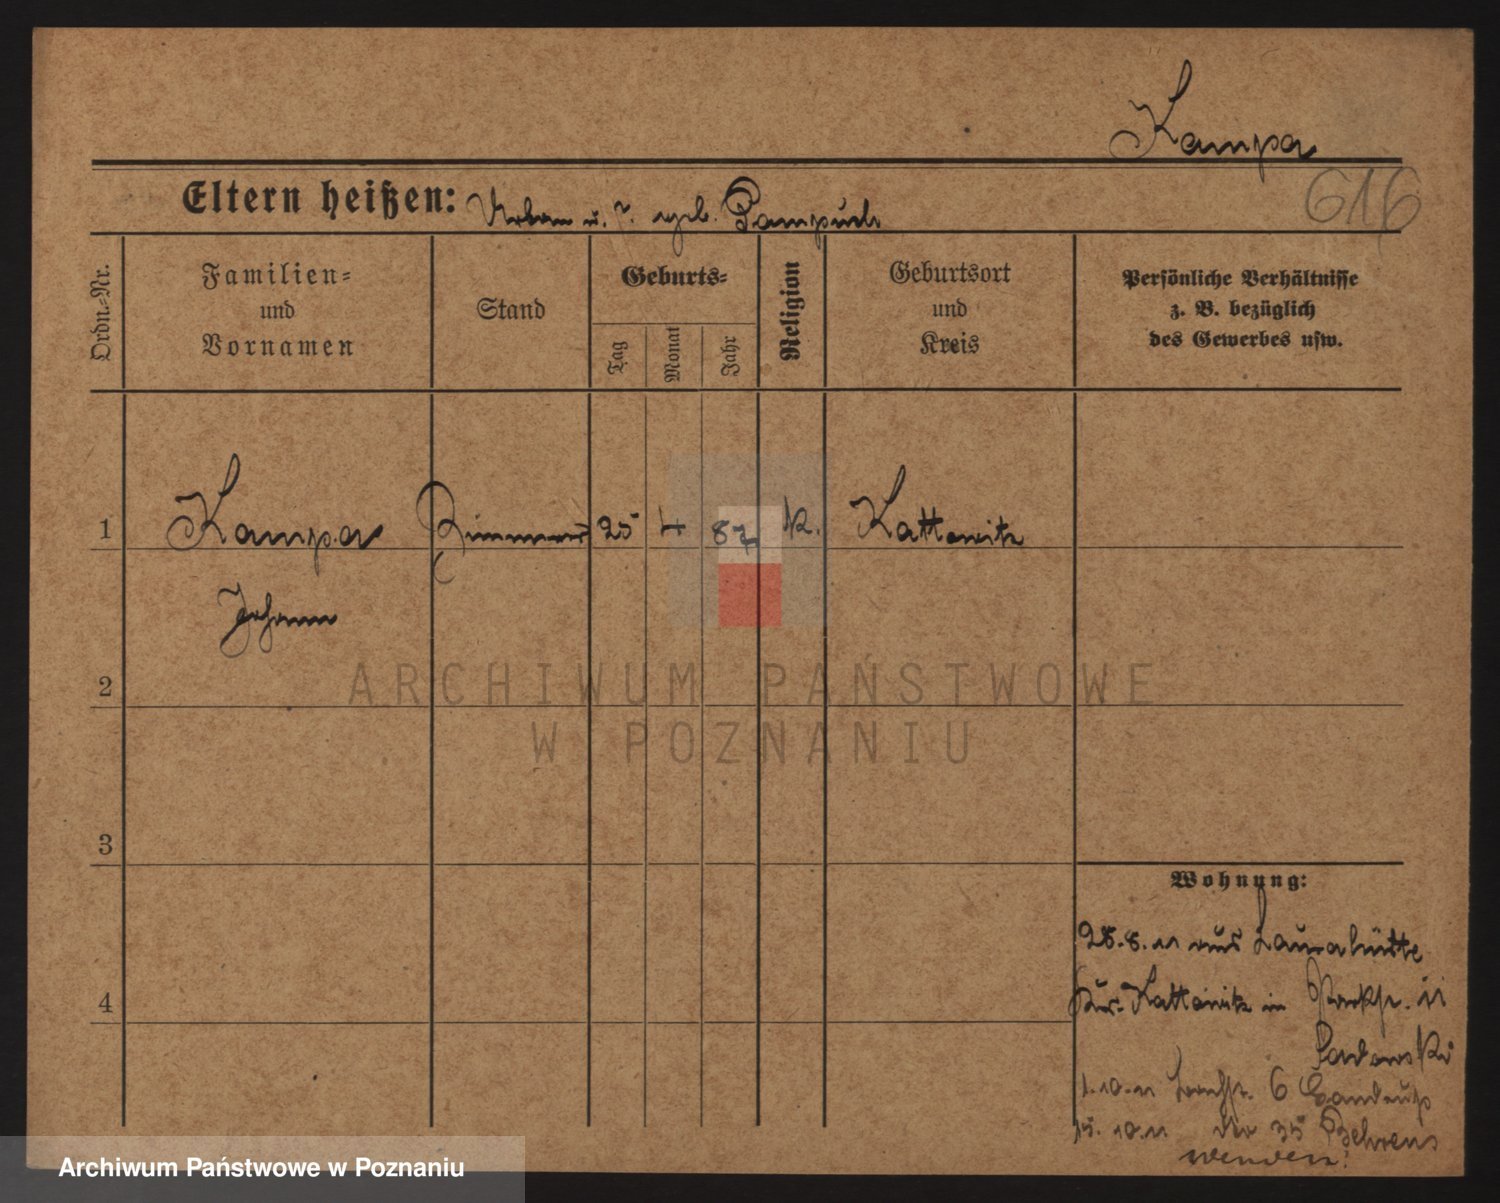 Kampa
616
Eltern heißen: Urban u. ?. geb. Pampuch
Ordn.-Nr.
Familien-
und
Vornamen
Stand
Geburts-
Tag
Monat
Jahr
Religion
Geburtsort
und
Kreis
Persönliche Verhältnisse
z. B. bezüglich
des Gewerbes usw.
1
Kampa
25
4
87
k.
Kattowitz
Johann
2
3
4
Wohnung:
28.8.11 aus Laurahütte
Kr. Kattowitz in 11
1.10.11 6
15.10.11 35 Behrens
wenden!
ARCHIWUM PAŃSTWOWE
W POZNANIU
Archiwum Państwowe w Poznaniu